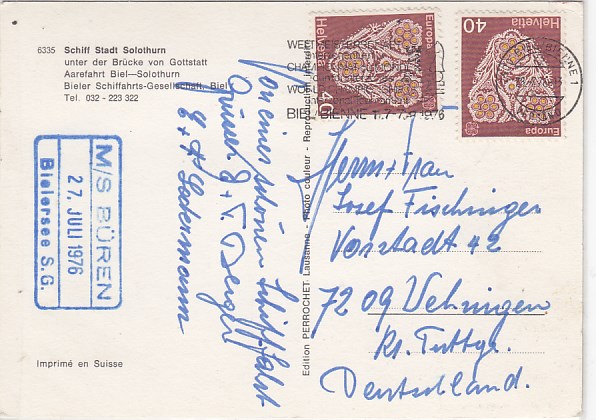 6335 Schiff Stadt Solothurn
unter der Brücke von Gottstatt
Aarefahrt Biel—Solothurn
Bieler Schiffahrts-Gesellschaft, Biel
Tel. 032 - 223 322
M/S BÜREN
27. JULI 1976
Bielersee S.G.
Imprimé en Suisse
Von einer schönen Schiffahrt
Grüsse
Edition PERROCHET Lausanne - Photo couleur - Reproduction
Helvetia
40
Europa
40
Helvetia
Europa
BIEL/BIENNE 11.7-7.8.1976
Herrn + Frau
Josef Fischinger
Vorstadt 42
7209 Wehingen
Kr. Tuttlg.
Deutschland.